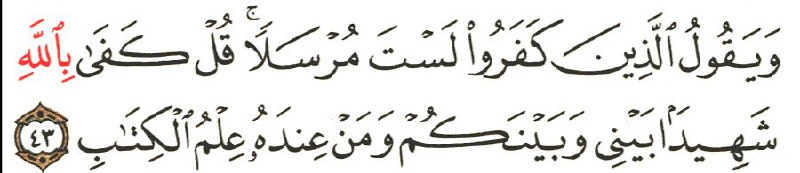 وَيَقُولُ ٱلَّذِينَ كَفَرُوا۟ لَسْتَ مُرْسَلًاۚ قُلْ كَفَىٰ بِٱللَّهِ
شَهِيدًۢا بَيْنِى وَبَيْنَكُمْ وَمَنْ عِندَهُۥ عِلْمُ ٱلْكِتَٰبِ ٤٣